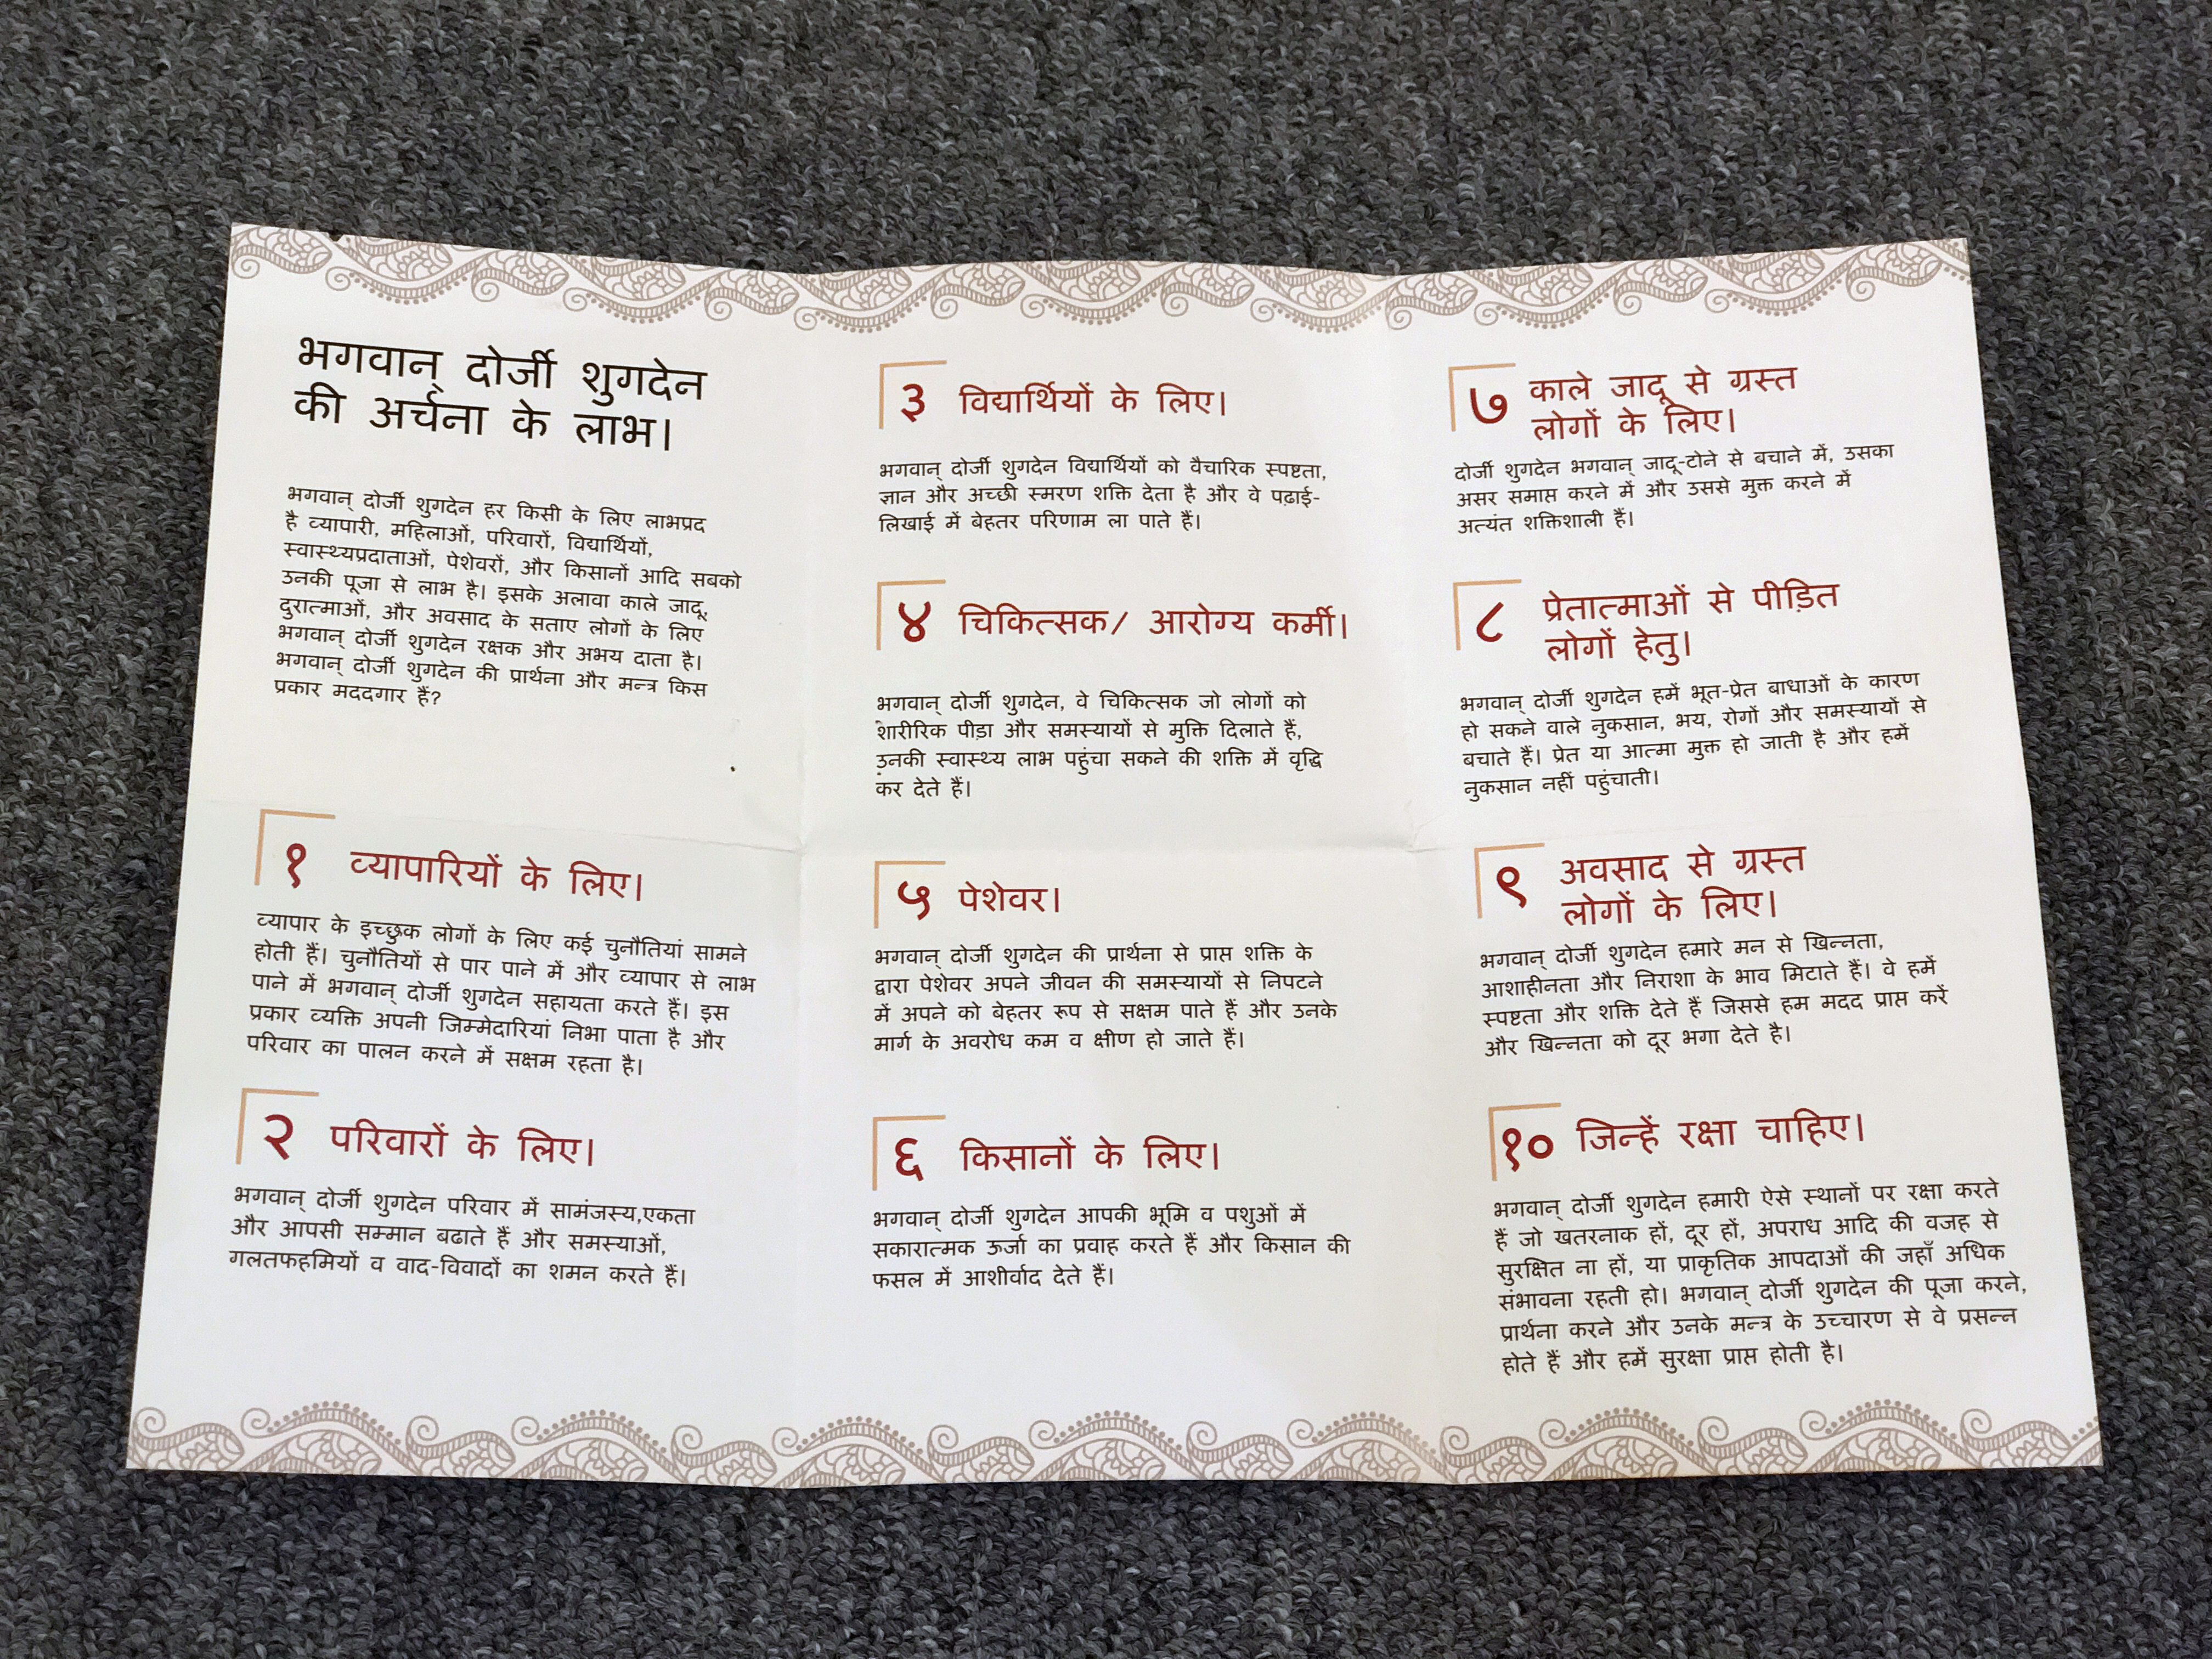 भगवान् दोर्जी शुगदेन
की अर्चना के लाभ।
भगवान् दोर्जी शुगदेन हर किसी के लिए लाभप्रद
है व्यापारी, महिलाओं, परिवारों, विद्यार्थियों,
स्वास्थ्यप्रदाताओं, पेशेवरों, और किसानों आदि सबको
उनकी पूजा से लाभ है। इसके अलावा काले जादू,
दुरात्माओं, और अवसाद के सताए लोगों के लिए
भगवान् दोर्जी शुगदेन रक्षक और अभय दाता है।
भगवान् दोर्जी शुगदेन की प्रार्थना और मन्त्र किस
प्रकार मददगार हैं?
१ व्यापारियों के लिए।
व्यापार के इच्छुक लोगों के लिए कई चुनौतियां सामने
होती हैं। चुनौतियों से पार पाने में और व्यापार से लाभ
पाने में भगवान् दोर्जी शुगदेन सहायता करते हैं। इस
प्रकार व्यक्ति अपनी जिम्मेदारियां निभा पाता है और
परिवार का पालन करने में सक्षम रहता है।
२ परिवारों के लिए।
भगवान् दोर्जी शुगदेन परिवार में सामंजस्य,एकता
और आपसी सम्मान बढाते हैं और समस्याओं,
गलतफहमियों व वाद-विवादों का शमन करते हैं।
३ विद्यार्थियों के लिए।
भगवान् दोर्जी शुगदेन विद्यार्थियों को वैचारिक स्पष्टता,
ज्ञान और अच्छी स्मरण शक्ति देता है और वे पढ़ाई-
लिखाई में बेहतर परिणाम ला पाते हैं।
४ चिकित्सक/ आरोग्य कर्मी।
भगवान् दोर्जी शुगदेन, वे चिकित्सक जो लोगों को
शारीरिक पीड़ा और समस्यायों से मुक्ति दिलाते हैं,
उनकी स्वास्थ्य लाभ पहुंचा सकने की शक्ति में वृद्धि
कर देते हैं।
५ पेशेवर।
भगवान् दोर्जी शुगदेन की प्रार्थना से प्राप्त शक्ति के
द्वारा पेशेवर अपने जीवन की समस्यायों से निपटने
में अपने को बेहतर रूप से सक्षम पाते हैं और उनके
मार्ग के अवरोध कम व क्षीण हो जाते हैं।
६ किसानों के लिए।
भगवान् दोर्जी शुगदेन आपकी भूमि व पशुओं में
सकारात्मक ऊर्जा का प्रवाह करते हैं और किसान की
फसल में आशीर्वाद देते हैं।
७ काले जादू से ग्रस्त
लोगों के लिए।
दोर्जी शुगदेन भगवान् जादू-टोने से बचाने में, उसका
असर समाप्त करने में और उससे मुक्त करने में
अत्यंत शक्तिशाली हैं।
८ प्रेतात्माओं से पीड़ित
लोगों हेतु।
भगवान् दोर्जी शुगदेन हमें भूत-प्रेत बाधाओं के कारण
हो सकने वाले नुकसान, भय, रोगों और समस्यायों से
बचाते हैं। प्रेत या आत्मा मुक्त हो जाती है और हमें
नुकसान नहीं पहुंचाती।
९ अवसाद से ग्रस्त
लोगों के लिए।
भगवान् दोर्जी शुगदेन हमारे मन से खिन्नता,
आशाहीनता और निराशा के भाव मिटाते हैं। वे हमें
स्पष्टता और शक्ति देते हैं जिससे हम मदद प्राप्त करें
और खिन्नता को दूर भगा देते है।
१० जिन्हें रक्षा चाहिए।
भगवान् दोर्जी शुगदेन हमारी ऐसे स्थानों पर रक्षा करते
हैं जो खतरनाक हों, दूर हों, अपराध आदि की वजह से
सुरक्षित ना हों, या प्राकृतिक आपदाओं की जहाँ अधिक
संभावना रहती हो। भगवान् दोर्जी शुगदेन की पूजा करने,
प्रार्थना करने और उनके मन्त्र के उच्चारण से वे प्रसन्न
होते हैं और हमें सुरक्षा प्राप्त होती है।